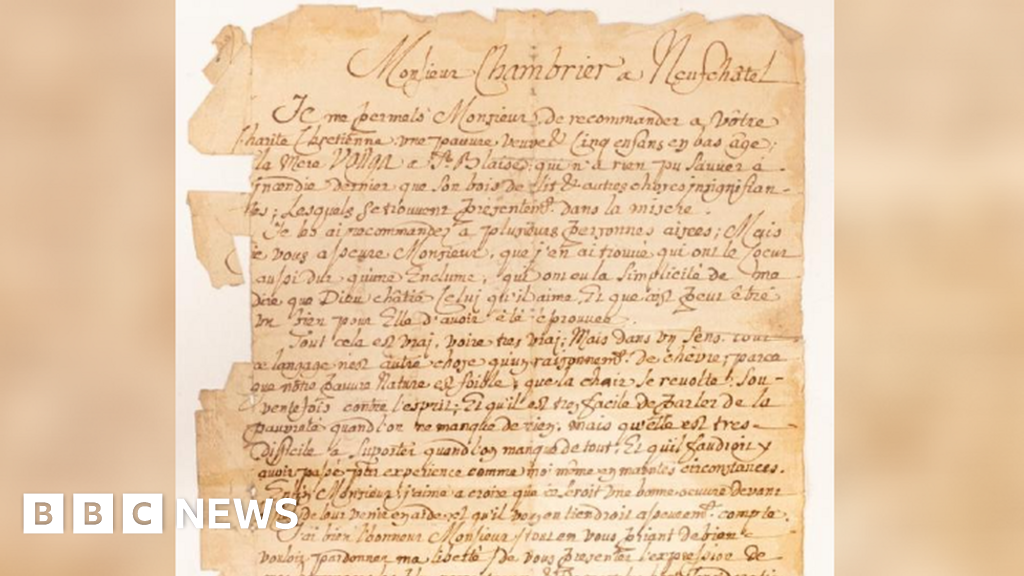 Monsieur Chambrier a Neufchâtel
Je me permets Monsieur, de recommander a vôtre
Charite Chretienne une pauvre veuve & Cinq enfans en bas âge;
la Mere a St. Blaise; qui n'a rien pu sauver à
Incendie dernier que son bois de lit & autres choses insignifian-
tes; Lesquels se trouvent presentemt. dans la misere.
Je les ai recommandez à plusieurs personnes aisées; Mais
je vous asseure Monsieur, que j'en ai trouvé qui ont le Coeur
aussi dur qu'une Enclume, qui ont eu la simplicité de me
dire que Dieu châtie Celuj qu'il aime, Et que c'est peut être
un bien pour Elle d'avoir été éprouvée.
Tout cela est vraj, voire tres vraj; Mais dans un sens, tout
ce langage n'est autre chose qu'un raisonnemt. de chèvre; parce
que nôtre pauvre Nature est foible, que la chair se revolte Sou-
ventefois contre l'esprit; Et qu'il est trop facile de parler de la
pauvreté quand l'on ne manque de rien, mais qu'elle est tres-
difficile à suporter quand l'on manque de tout, Et qu'il faudroit y
avoir passé par experience comme moi même en maintes circonstances.
Enfin, Monsieur, j'aime a croire que ce seroit une bonne oeuvre devant
de leur venir en aide, et qu'il vous en tiendroit assuremt. compte.
J'ai bien l'honneur Monsieur, tout en vous priant de bien
vouloir pardonner ma liberté de vous presenter l'expression de
BBC NEWS